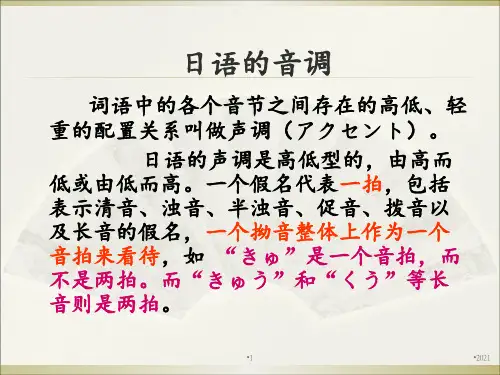 日语的音调
词语中的各个音节之间存在的高低、轻
重的配置关系叫做声调（アクセント）。
日语的声调是高低型的，由高而
低或由低而高。一个假名代表一拍，包括
表示清音、浊音、半浊音、促音、拨音以
及长音的假名，一个拗音整体上作为一个
音拍来看待，如 “きゅ”是一个音拍，而
不是两拍。而“きゅう”和“くう”等长
音则是两拍。
•1 •2021